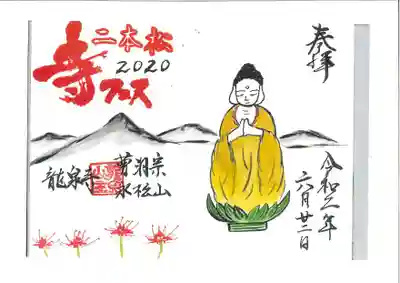 二本松
2020
寺フェス
奉拝
曹洞宗
永松山
龍泉寺
令和二年
六月廿二日